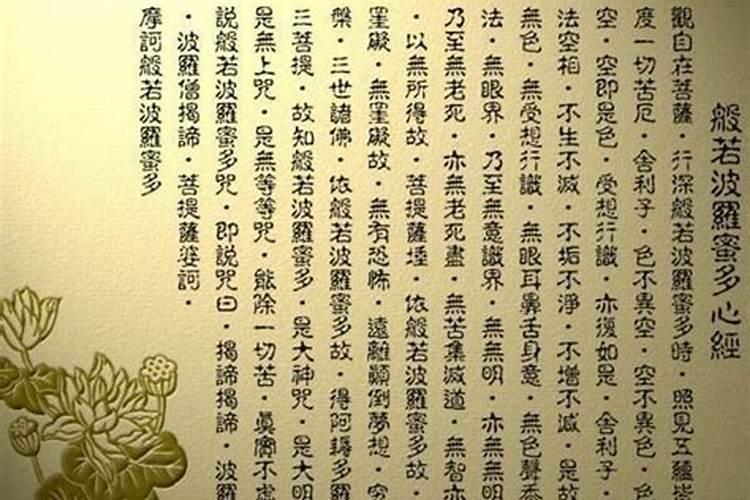 般若波羅蜜多心經
觀自在菩薩・行深般若波羅蜜多時・照見五蘊皆
度一切苦厄・舍利子・色不異空・空不異色・色
空・空即是色・受想行識・亦復如是・舍利子・
法空相・不生不滅・不垢不淨・不增不減・是故
無色・無受想行識・無眼耳鼻舌身意・無色聲香
法・無眼界・乃至無意識界・無無明・亦無無明
乃至無老死・亦無老死盡・無苦集滅道・無智亦
・以無所得故・菩提薩埵・依般若波羅蜜多故・
罣礙・無罣礙故・無有恐怖・遠離顛倒夢想・究
槃・三世諸佛・依般若波羅蜜多故・得阿耨多羅
三菩提・故知般若波羅蜜多・是大神咒・是大明
是無上咒・是無等等咒・能除一切苦・真實不虛
說般若波羅蜜多咒・即說咒曰・揭諦揭諦・波羅
・波羅僧揭諦・菩提薩婆訶・
摩訶般若波羅蜜多